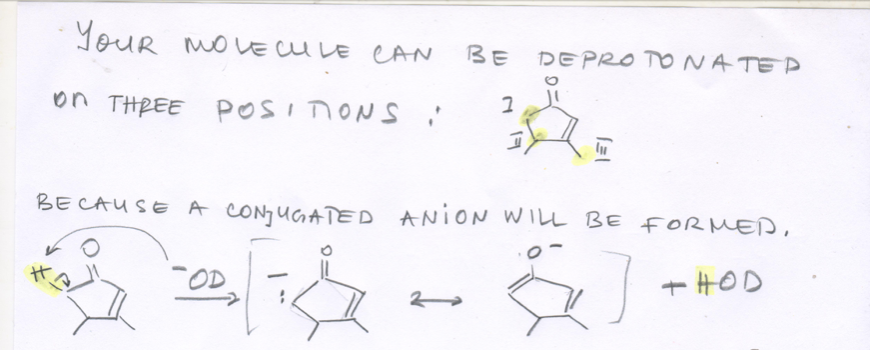 YOUR MOLECULE CAN BE DEPROTONATED
On THREE POSITIONS :
O
I
II
III
BECAUSE A CONJUGATED ANION WILL BE FORMED.
H O ⁻OD [ − : O ↔ O⁻ ] + HOD